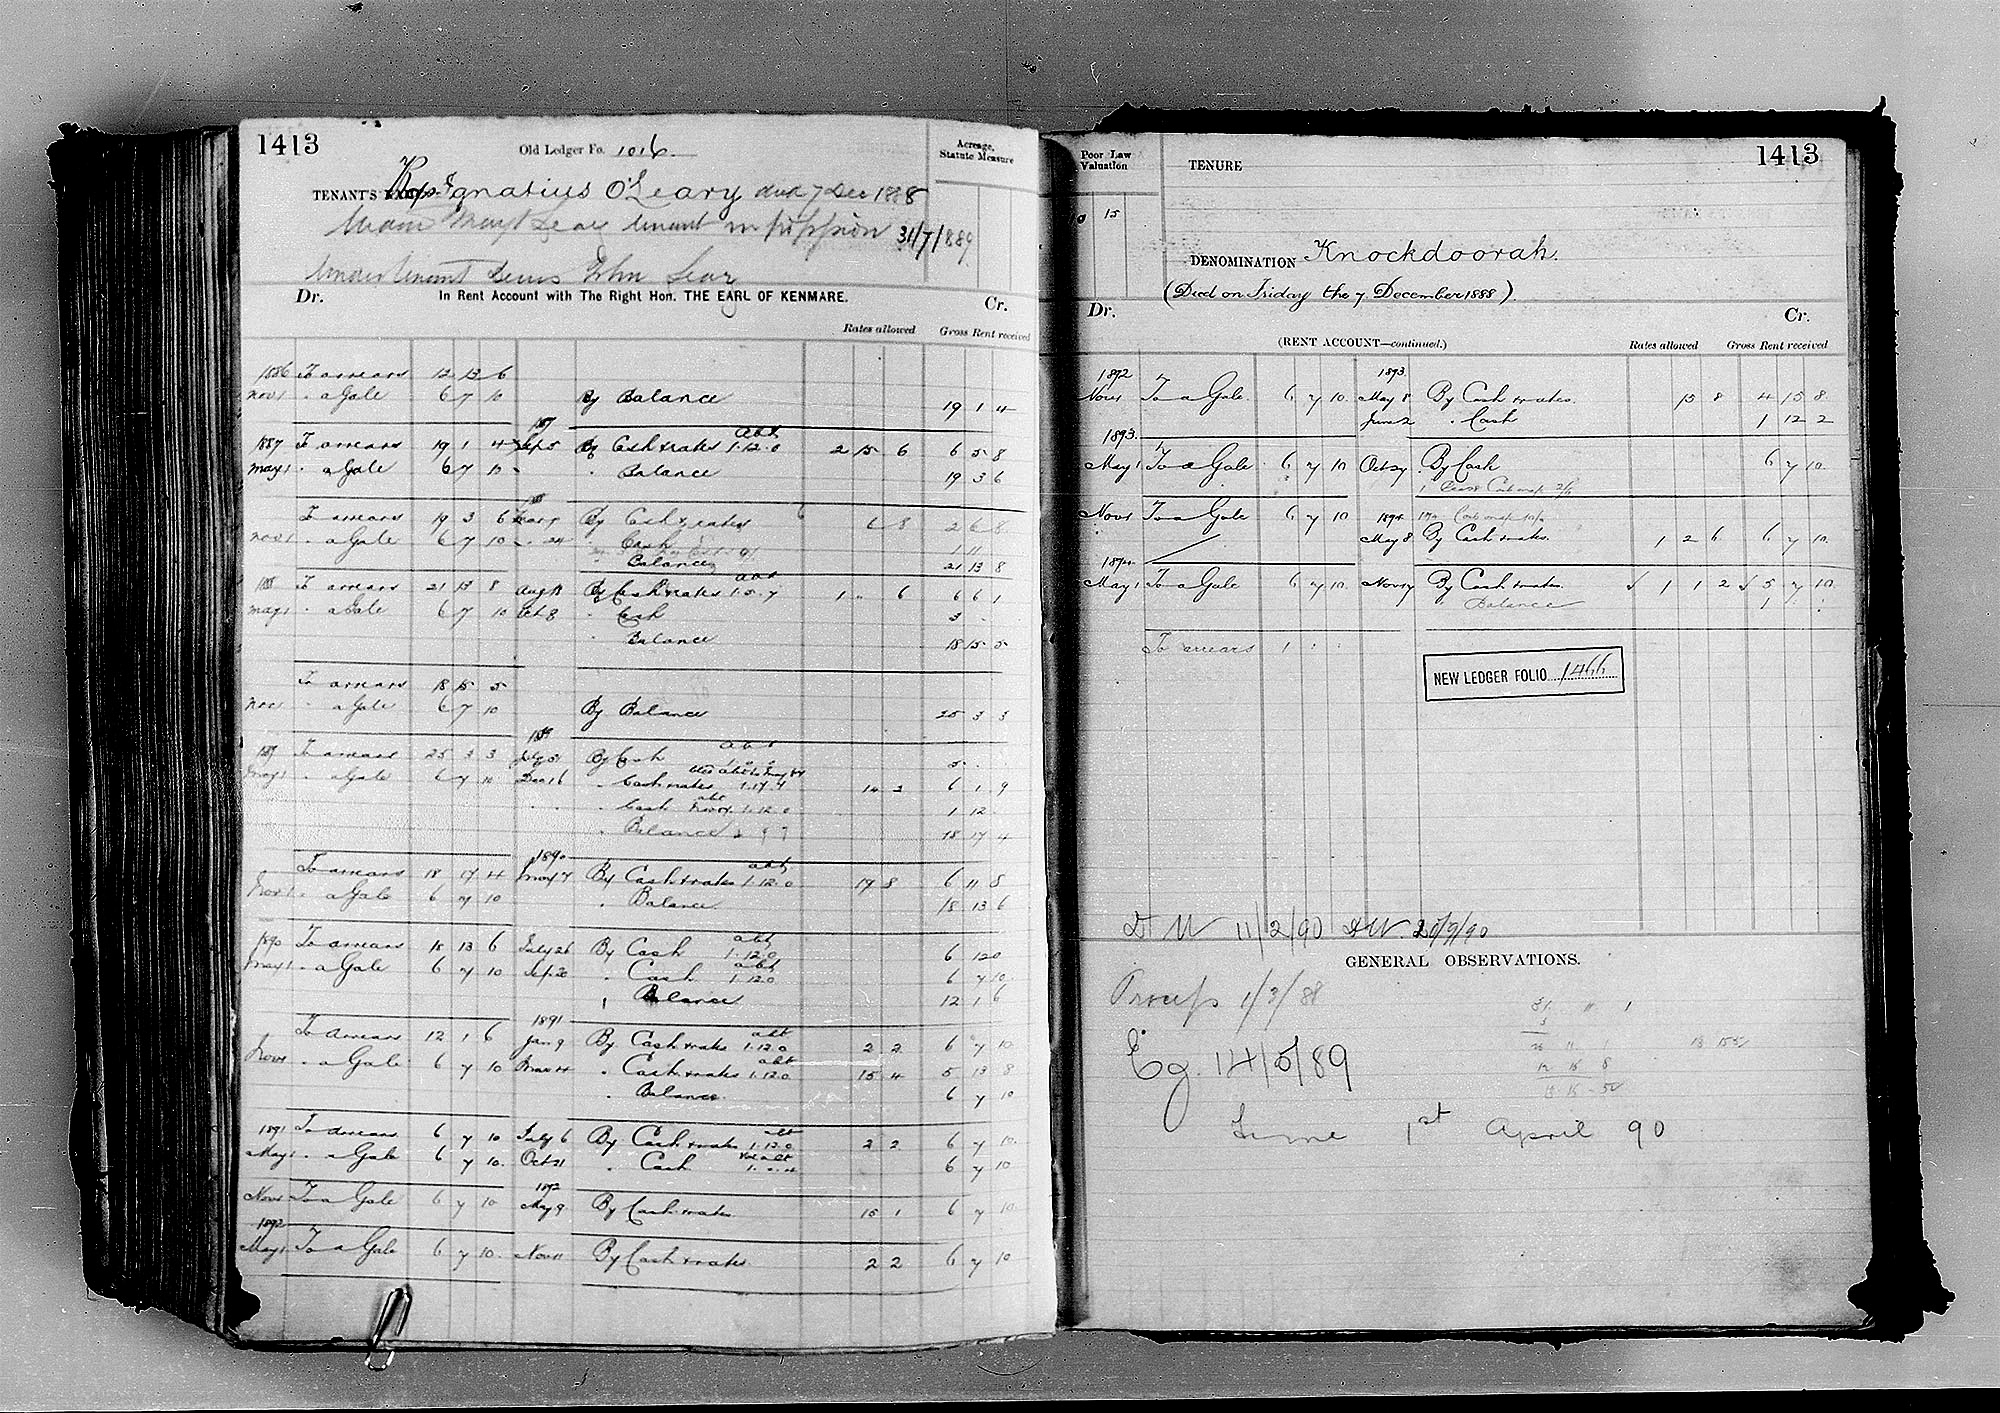 1413
Old Ledger Fo. 1016.
Acreage, Statute Measure
TENANT'S Reps Ignatius O'Leary died 7 Dec 1888
Leary tenant in possession 31/7/889
Undertenant Denis John Leary
Dr. In Rent Account with The Right Hon. THE EARL OF KENMARE. Cr.
Rates allowed Gross Rent received
1886 To arrears 12 13 6
Nov 1 " a Gale 6 7 10 By Balance 19 1 4
1887 To arrears 19 1 4 Sep 5 By Cash & rates abt 1.12.0 2 15 6 6 5 8
May 1 " a Gale 6 7 10 " Balance 19 3 6
To arrears 19 3 6 By Cash & rates 6 8 2 6 8
Nov 1 " a Gale 6 7 10 " 24 " Cash 1 11
Balance 21 13 8
188 To arrears 21 13 8 Aug By Cash & rates abt 1.5.7 1 " 6 6 6 1
May 1 " a Gale 6 7 10 Oct 8 " Cash 3 -
" Balance 18 15 5
To arrears 18 15 5
Nov 1 " a Gale 6 7 10 By Balance 25 3 3
1889
1889 To arrears 25 3 3 July 31 By Cash abt 5 -
May 1 " a Gale 6 7 10 Dec 16 " Cash & rates 1.17.4 14 2 6 1 9
" Cash abt Nov 1.12.0 1 12
" Balance 18 17 4
1890
To arrears 18 17 4 May 7 By Cash & rates abt 1.12.0 17 8 6 11 8
Nov 1 " a Gale 6 7 10 " Balance 18 13 6
1890 To arrears 18 13 6 July 26 By Cash abt 1.12.0 6 12 0
May 1 " a Gale 6 7 10 Sep 20 " Cash abt 1.12.0 6 7 10
" Balance 12 1 6
1891
To arrears 12 1 6 Jan 9 By Cash & rates abt 1.12.0 2 2 6 7 10
Nov 1 " a Gale 6 7 10 Mar 4 " Cash & rates abt 1.12.0 15 4 5 13 8
" Balance 6 7 10
1891 To arrears 6 7 10 July 6 By Cash & rates abt 1.12.0 2 2 6 7 10
May 1 " a Gale 6 7 10 Oct 21 " Cash abt 6 7 10
1892
Nov 1 To a Gale 6 7 10 May 9 By Cash & rates 15 1 6 7 10
1892
May 1 To a Gale 6 7 10 Nov 11 By Cash & rates 2 2 6 7 10
Poor Law Valuation
TENURE
1413
10 15
DENOMINATION Knockdoorah.
(Died on Friday the 7 December 1888).
Dr. Cr.
(RENT ACCOUNT—continued.) Rates allowed Gross Rent received
1892 1893
Nov 1 To a Gale 6 7 10 May 8 By Cash & rates. 15 8 4 15 8
June 2 " Cash 1 12 2
1893.
May 1 To a Gale 6 7 10 Oct 27 By Cash 6 7 10
Nov 1 To a Gale 6 7 10 1894
May 8 By Cash & rates. 1 2 6 6 7 10
1894
May 1 To a Gale 6 7 10 Nov 17 By Cash & rates ✓ 1 1 2 ✓ 5 7 10
Balance 1 : :
To arrears 1 : :
NEW LEDGER FOLIO 1466
D W 11/2/90 DW 20/9/90
GENERAL OBSERVATIONS.
Process 1/3/88
Eg. 14/5/89
Time 1st April 90